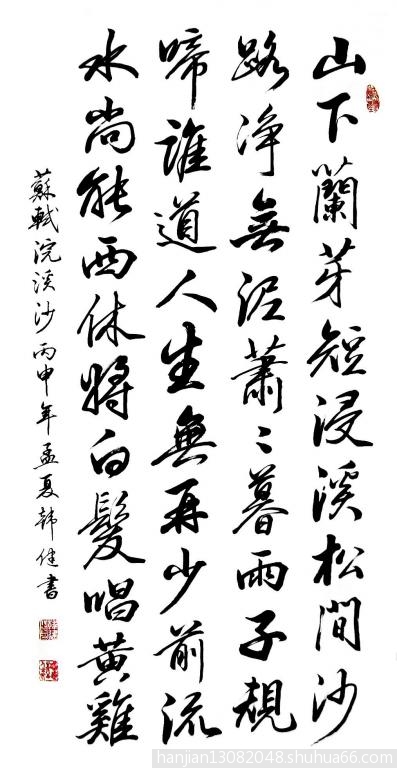 山下蘭芽短浸溪松間沙
路净無泥蕭〻暮雨子規
啼誰道人生無再少前流
水尚能西休將白髮唱黄雞
蘇軾浣溪沙丙申年孟夏韓健書
hanjian13082048.shuhua66.com